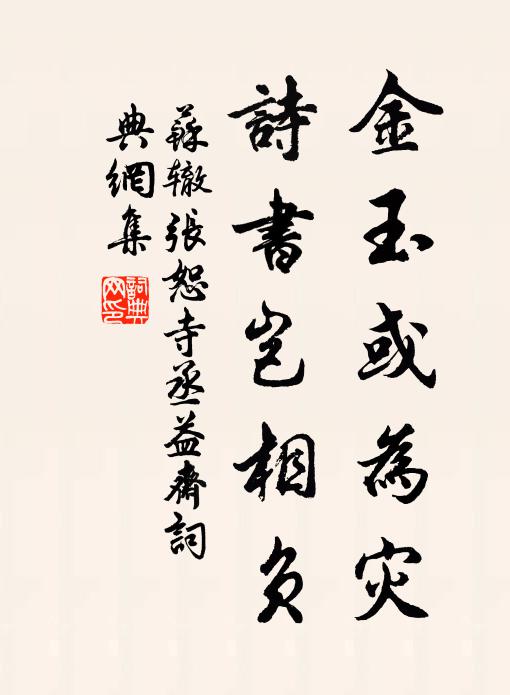 金玉或為灾
詩書岂相负
蘇辙張恕寺丞益齋詞
典網集
詞典网印